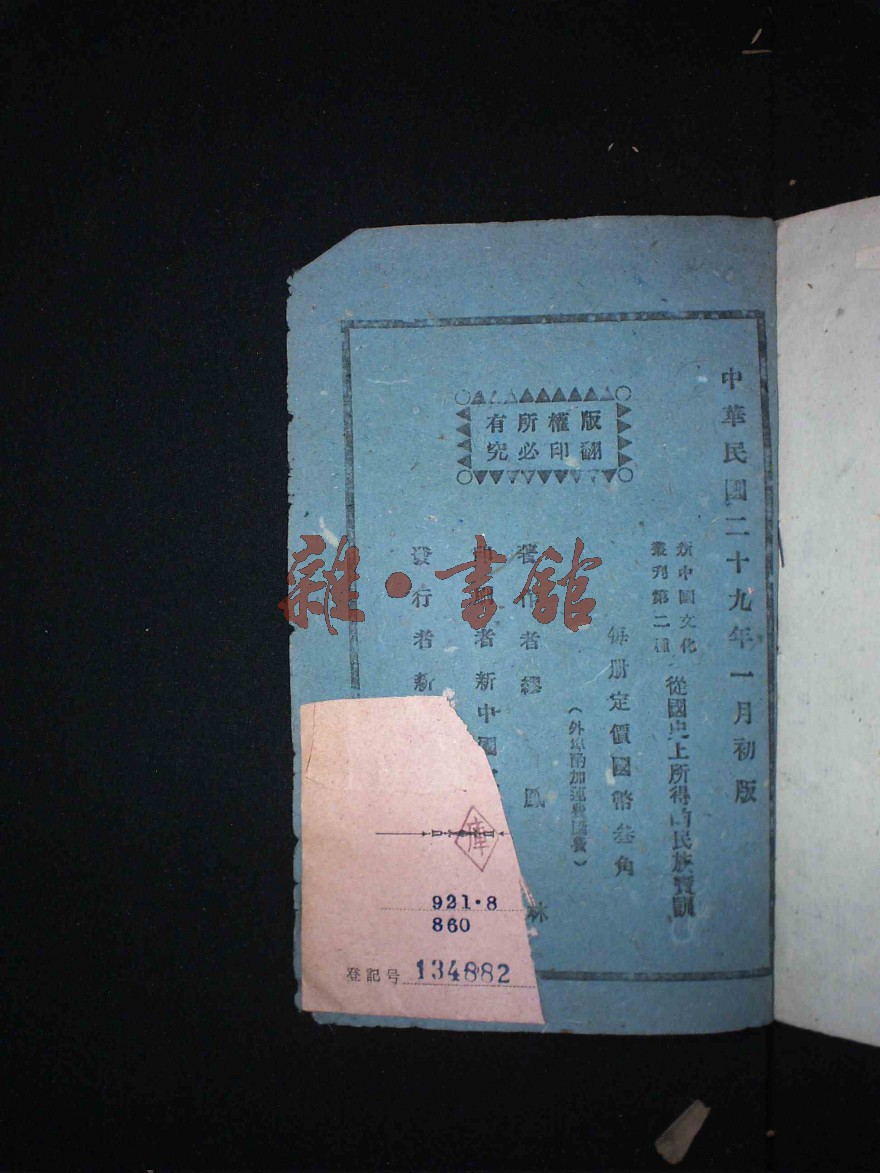 中華民國二十九年一月初版
新中國文化
叢刊第二種
從國史上所得的民族寶訓
每册定價國幣叁角
(外埠酌加運費匯費)
著作者繆鳳林
者新中國
發行者新
版權所有
翻印必究
雜·書館
庫
921·8
860
登記号 134882